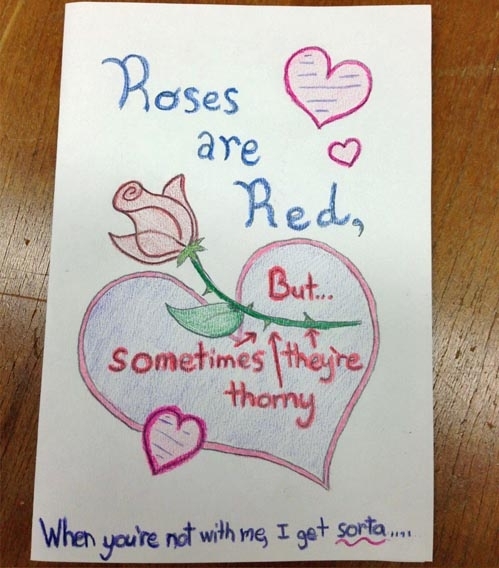 Roses
are
Red,
But...
sometimes they're
thorny
When you're not with me, I get sorta....